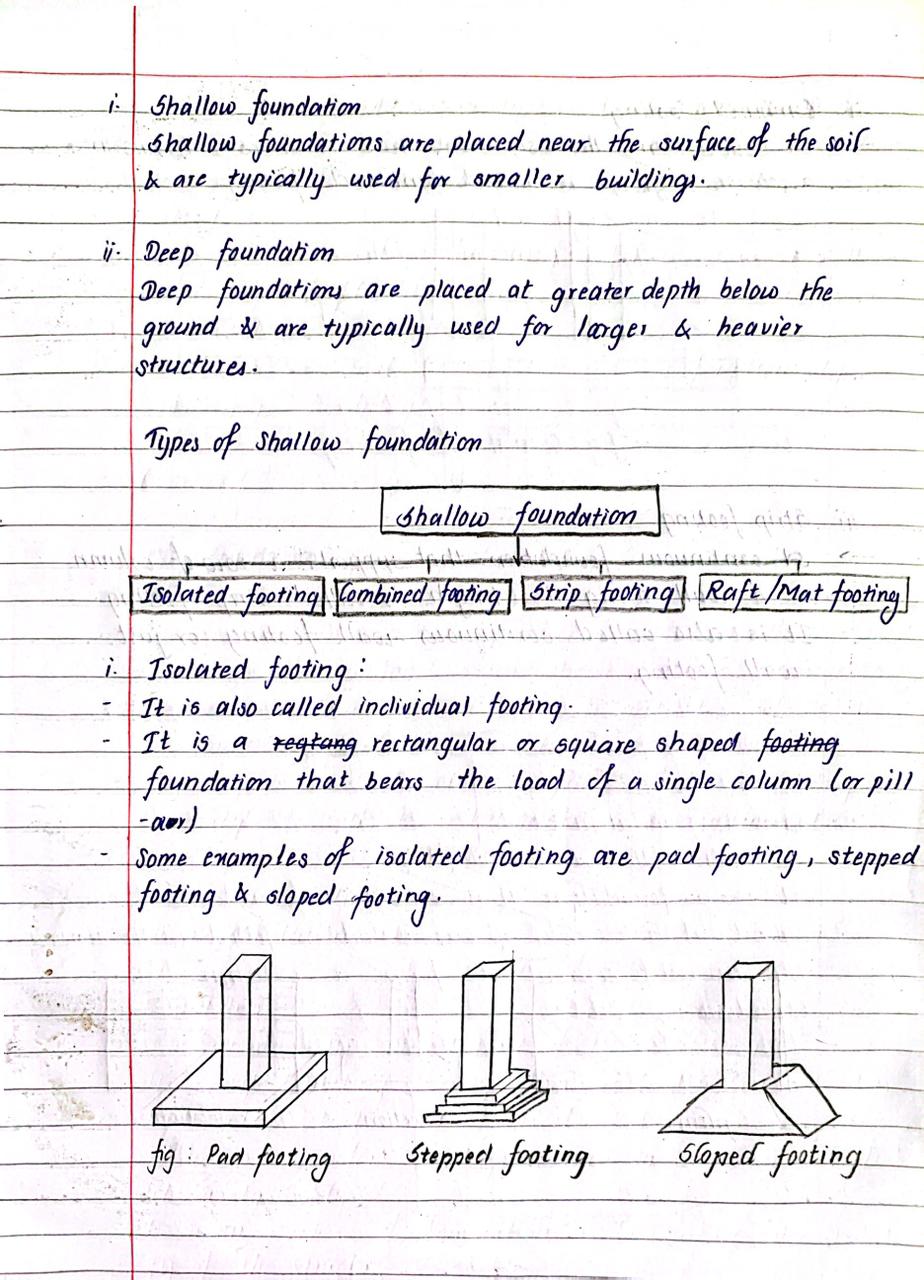 i. Shallow foundation
Shallow foundations are placed near the surface of the soil
& are typically used for smaller buildings.
ii. Deep foundation
Deep foundations are placed at greater depth below the
ground & are typically used for larger & heavier
structures.
Types of Shallow foundation
Shallow foundation
Isolated footing Combined footing Strip footing Raft/Mat footing
i. Isolated footing :
- It is also called individual footing.
- It is a regtang rectangular or square shaped footing
foundation that bears the load of a single column (or pill
-ar)
- Some examples of isolated footing are pad footing, stepped
footing & sloped footing.
fig : Pad footing Stepped footing Sloped footing